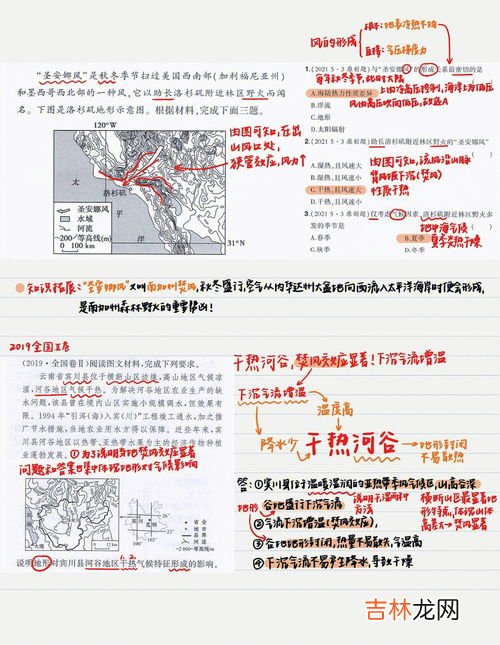 风的形成
根本:地表冷热不均
直接:气压梯度力
“圣安娜风”是秋冬季节扫过美国西南部(加利福尼亚州)
和墨西哥西北部的一种风,它以助长洛杉矶附近林区野火而闻
名。下图是洛杉矶地形示意图。根据材料,完成下面三题。
120°W
太
平
洋
洛杉矶
31°N
圣安娜风
水域
河流
200 等高线(m)
0 100 km
由图可知,在出
山风口处,
狭管效应,风力↑
1.(2021 5·3原创题)与“圣安娜风”的形成关系最密切的是
每年秋冬季节,此时大陆
A.海陆热力性质差异
上由冷高压控制,海洋上为低压
B.洋流
风由高压吹向低压,故选A
C.地形
D.太阳辐射
2.(2021 5·3原创题)助长洛杉矶附近林区野火的“圣安娜风”
A.湿热,且风速大
B.湿热,且风速小
C.干热,且风速大
D.干热,且风速小
由图可知,该风沿山脉
背风坡下沉(焚风)
性质干热
3.(2021 5·3原创题)仅考虑气候因素,洛杉矶附近林区野火多
发的季节是
A.春季
B.夏季
C.秋季
D.冬季
地中海气候
夏季炎热干燥
知识拓展:“圣安娜风”又叫南加州焚风,秋冬盛行,空气从内华达州大盆地向西涌入太平洋海岸时便会形成,
是南加州森林野火的重要帮凶!
2019全国Ⅱ卷
(2019·全国卷Ⅱ)阅读图文材料,完成下列要求。
云南省宾川县位于横断山区边缘,高山地区气候凉
湿,河谷地区气候干热。为解决河谷地区农业生产的缺
水问题,该县曾在境内山区实施小规模调水,但效果有
限。1994年“引洱(海)入宾(川)”工程竣工通水,加之推
广节水措施,当地农业用水方得以保障。近些年来,宾
川县河谷地区以热带、亚热带水果为主的经济作物种植
业蓬勃发展。
①为了说明导地焚风效应显著
问题和答案也集中体现地形对气候影响
省会
城市
县界
河流
2 000 等高线/m
说明地形对宾川县河谷地区干热气候特征形成的影响。
干热河谷,焚风效应显著!下沉气流增温
下沉气流增温
温度高
降水少
干热河谷
地形封闭
不易散热
答:①宾川县位于温暖湿润的亚热带季风气候区,山高谷深
地形
谷地盛行下沉气流
说明干湿两村
方法
横断山区最显著地
形特点,体现山体
高差大→焚风显著
②气流下沉增温(焚风效应),
③谷地地形封闭,热量不易散失,气温高
④下沉气流不易产生降水,导致干燥
吉林龙网